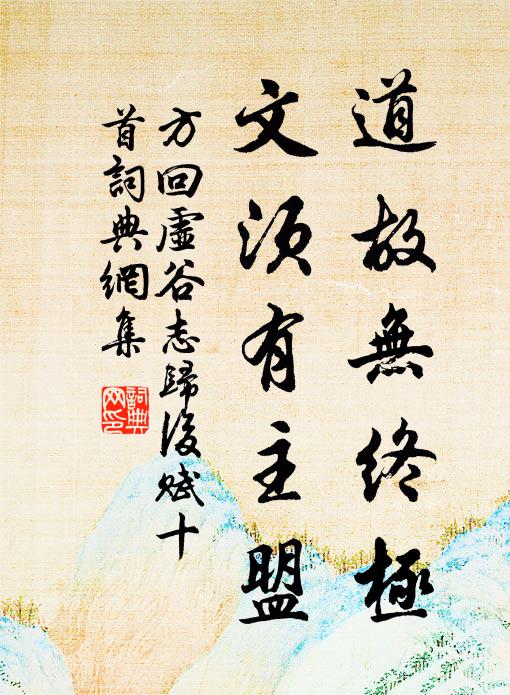 道故無終極
文須有主盟
方回虛谷志歸後賦十
首詞典網集
詞典網印